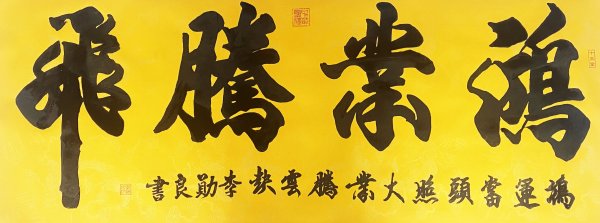 鴻業騰飛
鴻運當頭照大業騰雲㱕李勛良書